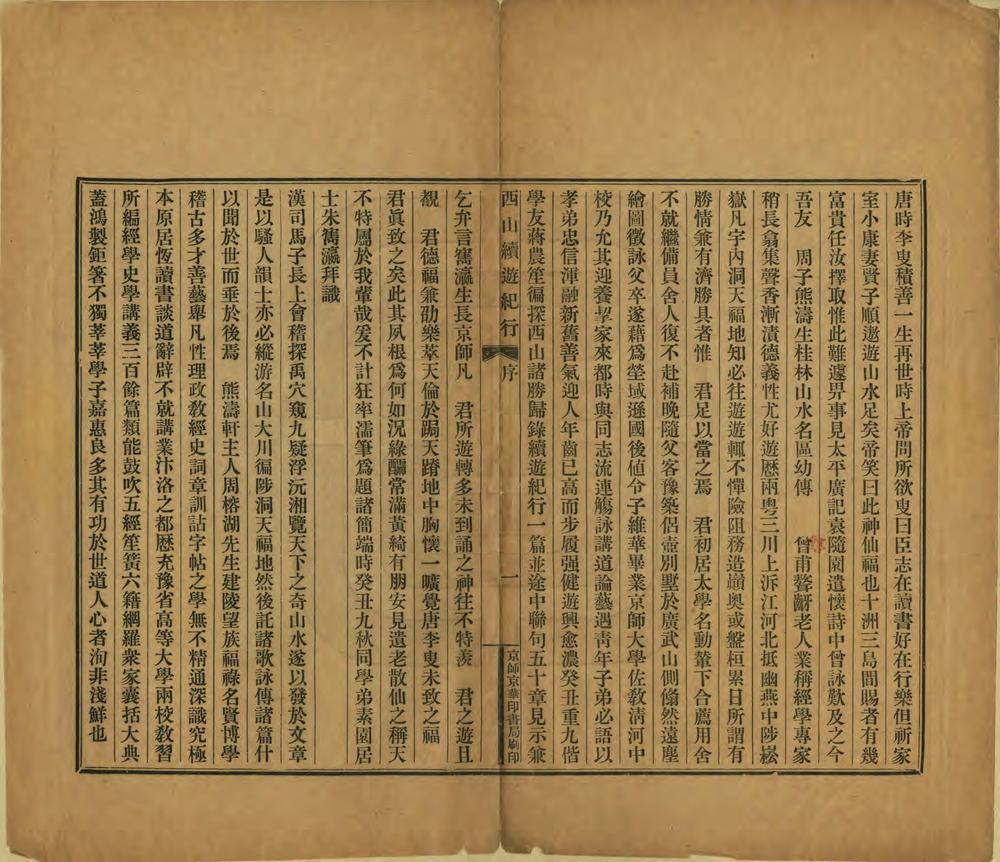 唐時李叟積善一生再世時上帝問所欲叟曰臣志在讀書好在行樂但祈家
室小康妻賢子順遨遊山水足矣帝笑曰此神仙福也十洲三島間賜者有幾
富貴任汝擇取惟此難遽畀事見太平廣記袁隨園遣懷詩中曾詠歎及之今
吾友 周子熊濤生桂林山水名區幼傳 曾甫薝齖老人業稱經學專家
稍長翕集聲香漸漬德義性尤好遊歷兩粵三川上泝江河北抵幽燕中陟崧
嶽凡宇內洞天福地知必往遊遊輒不憚險阻務造巔奧或盤桓累日所謂有
勝情兼有濟勝具者惟 君足以當之焉 君初居太學名動輦下合薦用舍
不就繼備員舍人復不赴補晚隨父客豫築侶壺別墅於廣武山側翛然遠塵
繪圖徵詠父卒遂藉為塋域遜國後值令子維華畢業京師大學佐教清河中
校乃允其迎養挈家來都時與同志流連觴詠講道論藝遇青年子弟必語以
孝弟忠信渾融新舊善氣迎人年齒已高而步履强健遊興愈濃癸丑重九偕
學友蔣農笙徧探西山諸勝歸錄續遊紀行一篇並途中聯句五十章見示兼
西山續遊紀行 序 一 京師京華印書局刷印
乞弁言寯瀛生長京師凡 君所遊轉多未到誦之神往不特羨 君之遊且
覩 君德福兼劭樂萃天倫於跼天蹐地中胸懷一曠覺唐李叟未致之福
君眞致之矣此其夙根爲何如況綠醽常滿黃綺有朋安見遺老散仙之稱天
不特屬於我輩哉爰不計狂率濡筆爲題諸簡端時癸丑九秋同學弟素園居
士朱寯瀛拜識
漢司馬子長上會稽探禹穴窺九疑浮沅湘覽天下之奇山水遂以發於文章
是以騷人韻士亦必縱游名山大川徧陟洞天福地然後託諸歌詠傳諸篇什
以聞於世而垂於後焉 熊濤軒主人周榕湖先生建陵望族福祿名賢博學
稽古多才善藝舉凡性理政敎經史詞章訓詁字帖之學無不精通深識究極
本原居恆讀書談道辭辟不就講業汴洛之都歷充豫省高等大學兩校敎習
所編經學史學講義三百餘篇類能鼓吹五經笙簧六籍網羅衆家囊括大典
蓋鴻製鉅箸不獨莘莘學子嘉惠良多其有功於世道人心者洵非淺鮮也